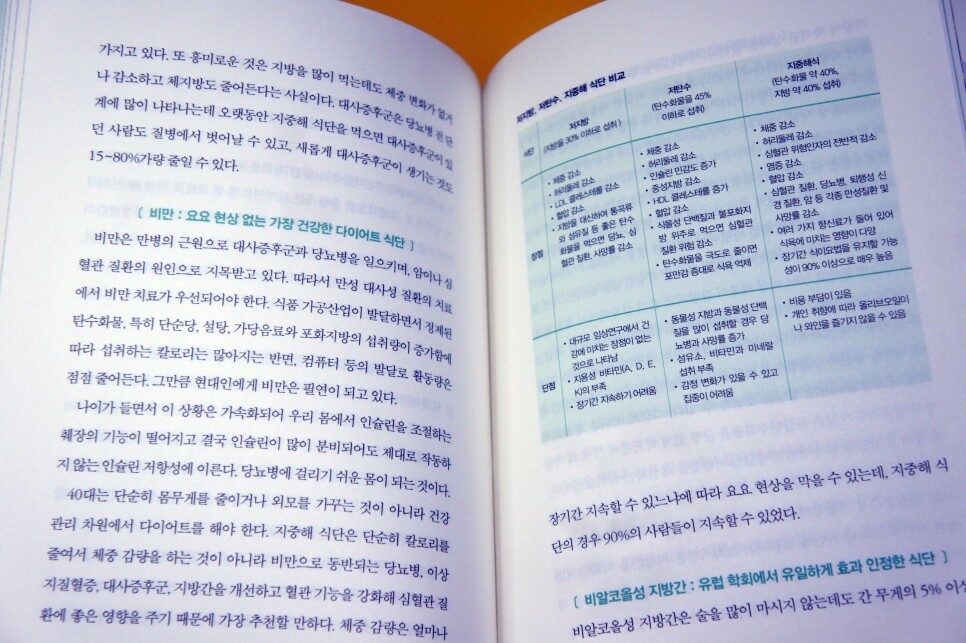 가지고 있다. 또 흥미로운 것은 지방을 많이 먹는데도 체중 변화가 없거
나 감소하고 체지방도 줄어든다는 사실이다. 대사증후군은 당뇨병 전 단
계에 많이 나타나는데 오랫동안 지중해 식단을 먹으면 대사증후군이 있
던 사람도 질병에서 벗어날 수 있고, 새롭게 대사증후군이 생기는 것도
15~80%가량 줄일 수 있다.
[ 비만 : 요요 현상 없는 가장 건강한 다이어트 식단 ]
비만은 만병의 근원으로 대사증후군과 당뇨병을 일으키며, 암이나 심
혈관 질환의 원인으로 지목받고 있다. 따라서 만성 대사성 질환의 치료
에서 비만 치료가 우선되어야 한다. 식품 가공산업이 발달하면서 정제된
탄수화물, 특히 단순당, 설탕, 가당음료와 포화지방의 섭취량이 증가함에
따라 섭취하는 칼로리는 많아지는 반면, 컴퓨터 등의 발달로 활동량은
점점 줄어든다. 그만큼 현대인에게 비만은 필연이 되고 있다.
나이가 들면서 이 상황은 가속화되어 우리 몸에서 인슐린을 조절하는
췌장의 기능이 떨어지고 결국 인슐린이 많이 분비되어도 제대로 작동하
지 않는 인슐린 저항성에 이른다. 당뇨병에 걸리기 쉬운 몸이 되는 것이다.
40대는 단순히 몸무게를 줄이거나 외모를 가꾸는 것이 아니라 건강
관리 차원에서 다이어트를 해야 한다. 지중해 식단은 단순히 칼로리를
줄여서 체중 감량을 하는 것이 아니라 비만으로 동반되는 당뇨병, 이상
지질혈증, 대사증후군, 지방간을 개선하고 혈관 기능을 강화해 심혈관 질
환에 좋은 영향을 주기 때문에 가장 추천할 만하다. 체중 감량은 얼마나
저지방, 저탄수, 지중해 식단 비교
식단
저지방
(지방을 30% 이하로 섭취)
저탄수
(탄수화물을 45%
이하로 섭취)
지중해식
(탄수화물 약 40%,
지방 약 40% 섭취)
장점
• 체중 감소
• 허리둘레 감소
• LDL 콜레스테롤 감소
• 혈압 감소
• 지방을 대신하여 통곡류
와 섬유질 등 좋은 탄수
화물을 먹으면 당뇨, 심
혈관 질환, 사망률 감소
• 체중 감소
• 허리둘레 감소
• 인슐린 민감도 증가
• 중성지방 감소
• HDL 콜레스테롤 증가
• 혈압 감소
• 식물성 단백질과 불포화지
방 위주로 먹으면 심혈관
질환 위험 감소
• 탄수화물을 극도로 줄이면
포만감 증대로 식욕 억제
• 체중 감소
• 허리둘레 감소
• 심혈관 위험인자의 전반적 감소
• 염증 감소
• 혈압 감소
• 심혈관 질환, 당뇨병, 퇴행성 신
경 질환, 암 등 각종 만성질환 및
사망률 감소
• 여러 가지 향신료가 들어 있어
식욕에 미치는 영향이 다양
• 장기간 식이요법을 유지할 가능
성이 90% 이상으로 매우 높음
단점
• 대규모 임상연구에서 건
강에 미치는 장점이 없는
것으로 나타남
• 지용성 비타민(A, D, E,
K)의 부족
• 장기간 지속하기 어려움
• 동물성 지방과 동물성 단백
질을 많이 섭취할 경우 당
뇨병과 사망률 증가
• 섬유소, 비타민과 미네랄
섭취 부족
• 감정 변화가 있을 수 있고
집중이 어려움
• 비용 부담이 있음
• 개인 취향에 따라 올리브오일이
나 와인을 즐기지 않을 수 있음
장기간 지속할 수 있느냐에 따라 요요 현상을 막을 수 있는데, 지중해 식
단의 경우 90%의 사람들이 지속할 수 있었다.
[ 비알코올성 지방간 : 유럽 학회에서 유일하게 효과 인정한 식단 ]
비알코올성 지방간은 술을 많이 마시지 않는데도 간 무게의 5% 이상